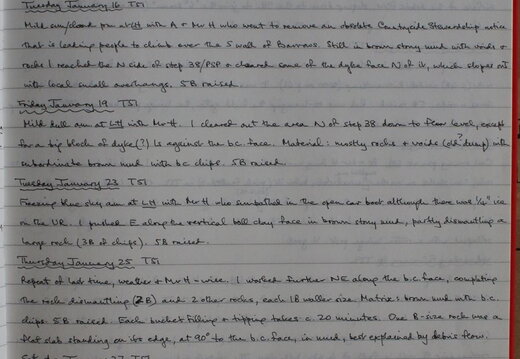 Tuesday January 16 T51
Mild sun/cloud pm at LH with A + Mr H who went to remove an obsolete Countryside Stewardship notice
that is leading people to climb over the S wall of Barrows. Still in brown stony mud with voids +
rocks I reached the N side of step 38/PSP + cleared some of the dyke face N of it, which slopes out
with local small overhangs. 5B raised.
Friday January 19 T51
Mild dull am at LH with Mr H. I cleared out the area N of step 38 down to floor level, except
for a big block of dyke(?) 1s against the b.c. face. Material: mostly rocks + voids (old? dump) with
subordinate brown mud with bc chips. 5B raised.
Tuesday January 23 T51
Freezing blue sky am at LH with Mr H who sunbathed in the open car boot although there was 1/4" ice
on the UR. I pushed E along the vertical ball clay face in brown stony mud, partly dismantling a
large rock (3B of chips). 5B raised.
Thursday January 25 T51
Repeat of last time, weather + Mr H-wise. I worked further NE along the b.c. face, completing
the rock dismantling (2B) and 2 other rocks, each 1B water size. Matrix: brown mud with b.c.
chips. 5B raised. Each bucket filling + tipping takes c. 20 minutes. One B-size rock was a
flat slab standing on its edge, at 90° to the b.c. face, in mud, best explained by debris flow.